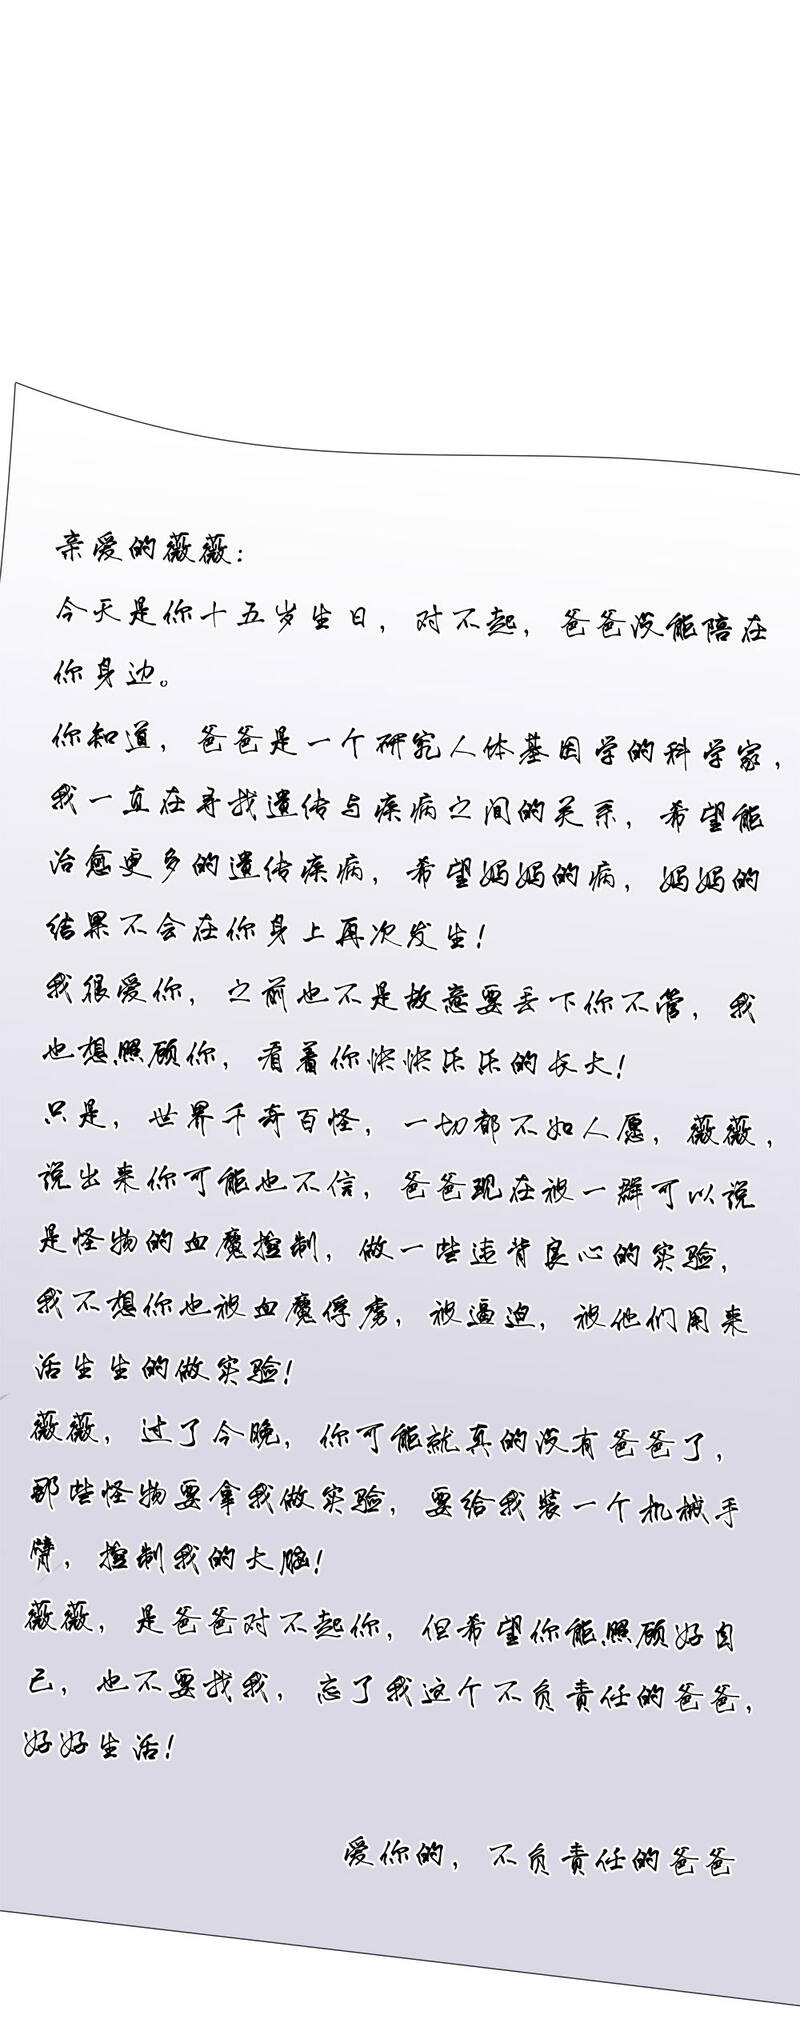 亲爱的薇薇:
今天是你十五岁生日，对不起，爸爸没能陪在
你身边。
你知道，爸爸是一个研究人体基因学的科学家，
我一直在寻找遗传与疾病之间的关系，希望能
治愈更多的遗传疾病，希望妈妈的病，妈妈的
结果不会在你身上再次发生!
我很爱你，之前也不是故意要丢下你不管，我
也想照顾你，看着你快快乐乐的长大!
只是，世界千奇百怪，一切都不如人愿，薇薇，
说出来你可能也不信，爸爸现在被一群可以说
是怪物的血魔控制，做一些违背良心的实验，
我不想你也被血魔俘虏，被逼迫，被他们用来
活生生的做实验!
薇薇，过了今晚，你可能就真的没有爸爸了，
那些怪物要拿我做实验，要给我装一个机械手
臂，控制我的大脑!
薇薇，是爸爸对不起你，但希望你能照顾好自
己，也不要找我，忘了我这个不负责任的爸爸，
好好生活!
爱你的，不负责任的爸爸